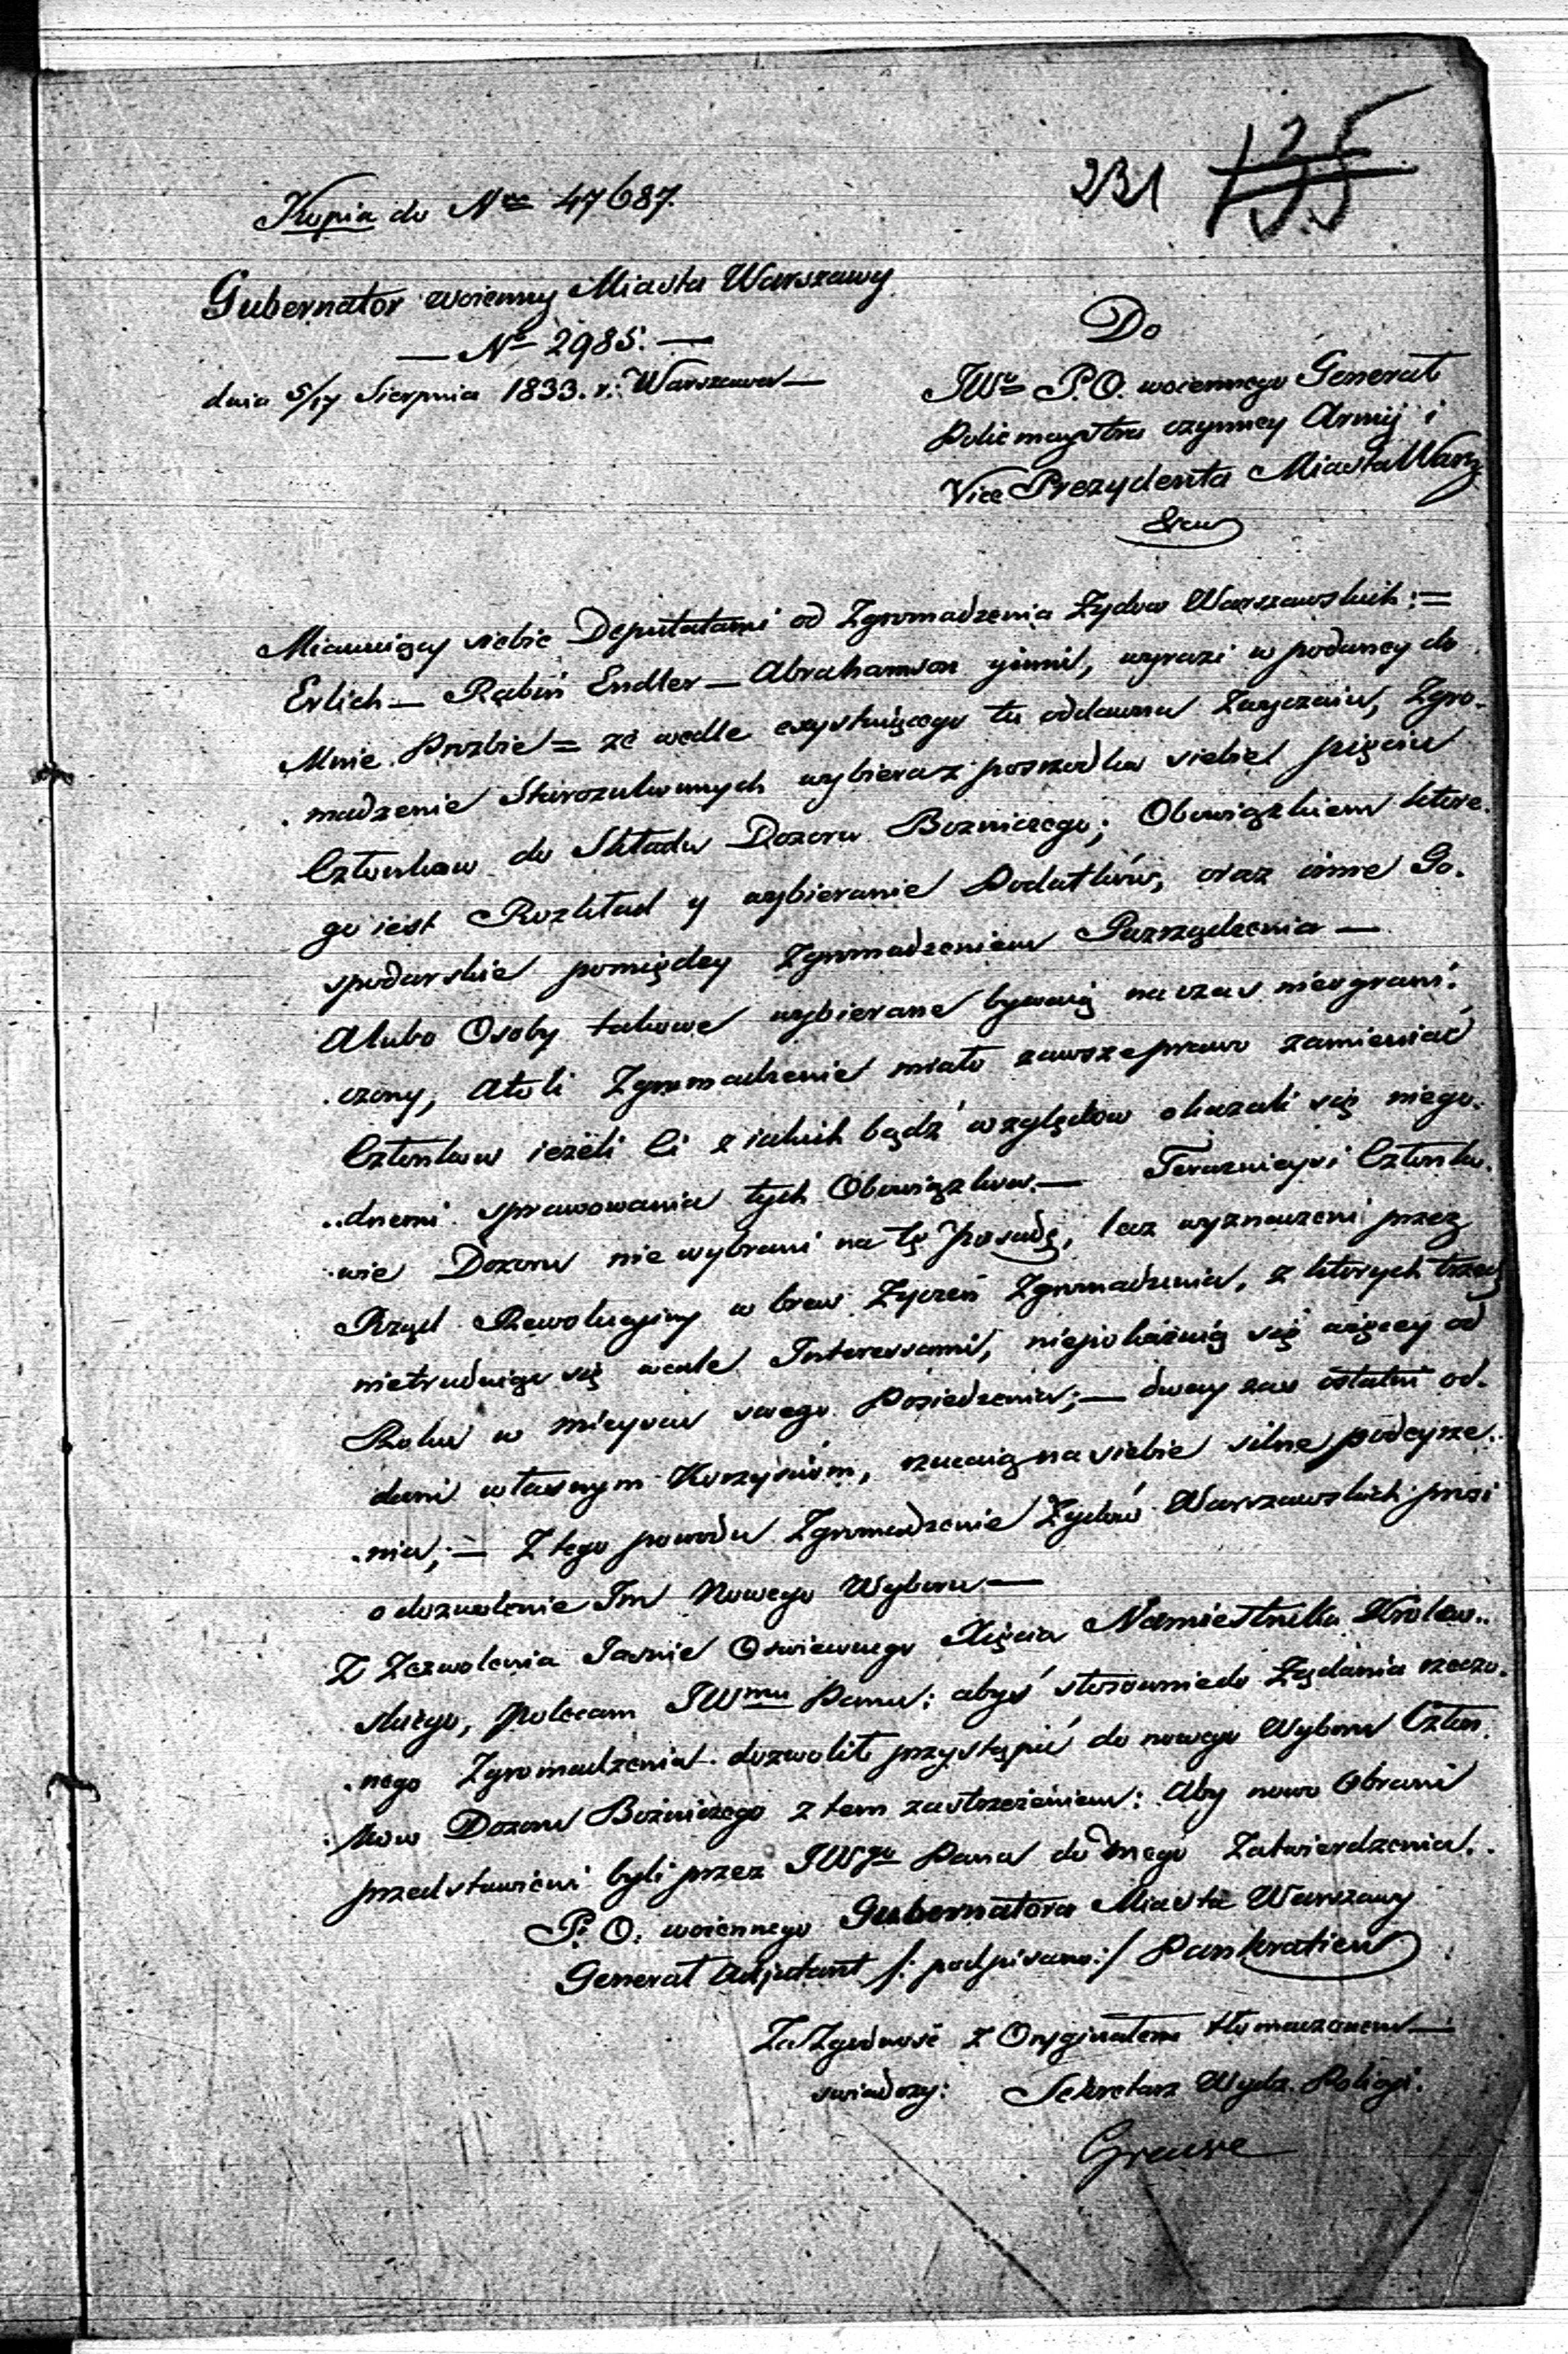 231 135
Kopia do Nro 47687.
Gubernator woienny Miasta Warszawy
— No 2985. —
dnia 5/17 Sierpnia 1833. r.: Warszawa —
Do
JWo P.O. woiennego Generał
Policmaystra czynney Armij i
Vice Prezydenta Miasta Warsz
Mianuiący siebie Deputatami od Zgromadzenia Żydow Warszawskich :=
Erlich — Rabin Endler — Abrahamson y inni, wyrazi w podaney do
Mnie Prozbie = że wedle exystuiącego tu oddawna Zwyczaiu, Zgro-
madzenie Starozakonnych wybiera z posrzodka siebie pięciu
Członkow do Składu Dozoru Bozniczego; Obowiązkiem które-
go iest Rozkład y wybieranie Podatków, oraz inne Go-
spodarskie pomiędzy Zgromadzeniem Rozrządzenia —
Alubo Osoby takowe wybierane bywaią na czas nieograni-
czony, Atoli Zgromadzenie miało zawsze prawo zamieniać
Członkow ieżeli Ci z iakich bądź względow okazali się niego-
dnemi sprawowania tych Obowiązkow. — Teraznieysi Członko-
wie Dozoru nie wybrani na tę Posadę, lecz wyznaczeni przez
Rząd Rewolucyiny w brew Życzeń Zgromadzenia, z których trzey
nietrudniąc się wcale Interessami, niepokażuią się więcey od
Roku w mieyscu swego Posiedzenia; — dway zas ostatni od-
dani własnym Korzyściom, rzucaią na siebie silne podeyrze-
nia; — Z tego powodu Zgromadzenie Żydów Warszawskich prosi
o dozwolenie Im Nowego Wyboru —
Z Zezwolenia Jasnie Oswieconego Xięcia Namiestnika Krolew-
skiego, polecam JWmu Panu: abyś stosownie do Żądania rzeczo-
nego Zgromadzenia dozwolił przystąpić do nowego Wyboru Człon-
kow Dozoru Bożniczego z tem zastrzeżeniem: Aby nowo Obrani
przedstawieni byli przez JWgo Pana do mego Zatwierdzenia.
P. O. woiennego Gubernatora Miasta Warszawy
Generał Adjutant /: podpisano:/ Pankratiew
Za Zgodność z Oryginałem tłomaczonem —
swiadczy: Sekretarz Wydz. Policyi.